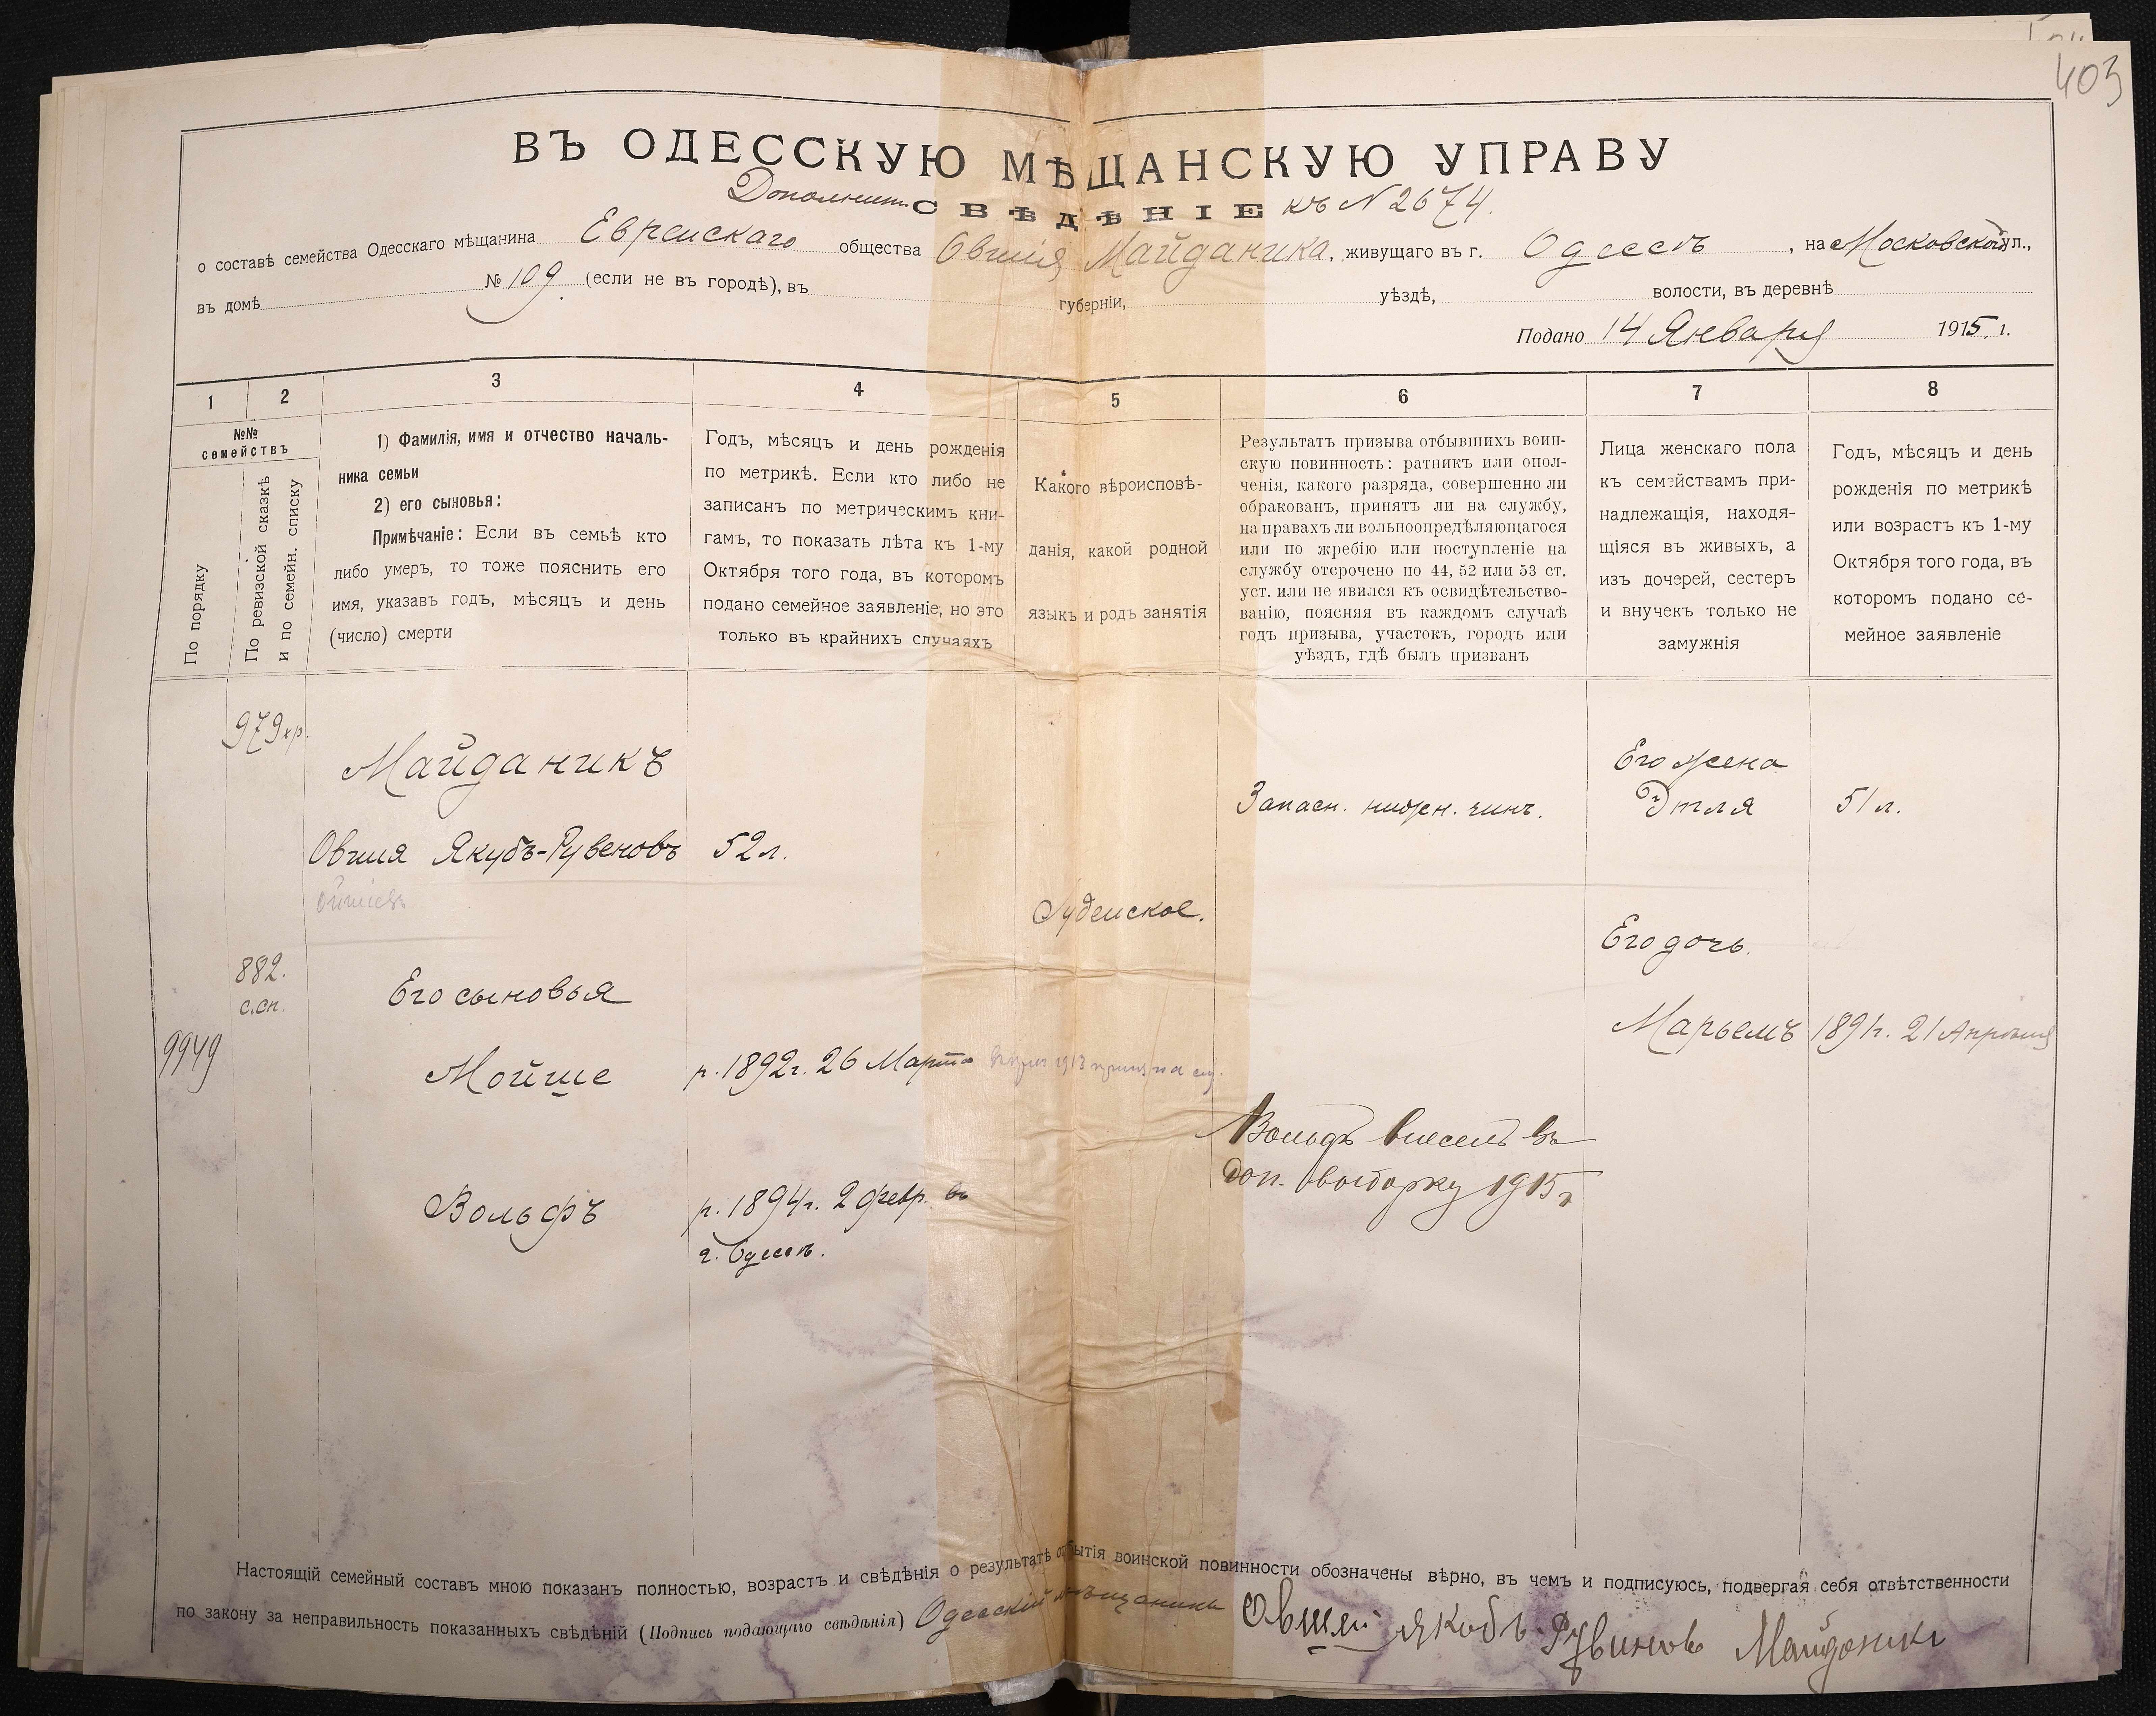 403
ВЪ ОДЕССКУЮ МѢЩАНСКУЮ УПРАВУ
Дополнит. СВѢДѢНІЕ къ N 2674.
о составѣ семейства Одесскаго мѣщанина Еврейскаго общества Овшія Майданика, живущаго въ г. Одессѣ, на Московской ул.,
въ домѣ № 109 (если не въ городѣ), въ губерніи, уѣздѣ, волости, въ деревнѣ
Подано 14 Января 1915 г.
1 2 3 4 5 6 7 8
№№ семействъ
По порядку
По ревизской сказкѣ и по семейн. списку
1) Фамилія, имя и отчество началь-
ника семьи
2) его сыновья:
Примѣчаніе: Если въ семьѣ кто
либо умеръ, то тоже пояснить его
имя, указавъ годъ, мѣсяцъ и день
(число) смерти
Годъ, мѣсяцъ и день рожденія
по метрикѣ. Если кто либо не
записанъ по метрическимъ кни-
гамъ, то показать лѣта къ 1-му
Октября того года, въ которомъ
подано семейное заявленіе, но это
только въ крайнихъ случаяхъ
Какого вѣроисповѣ-
данія, какой родной
языкъ и родъ занятія
Результатъ призыва отбывшихъ воин-
скую повинность: ратникъ или опол-
ченія, какого разряда, совершенно ли
обракованъ, принятъ ли на службу,
на правахъ ли вольноопредѣляющагося
или по жребію или поступленіе на
службу отсрочено по 44, 52 или 53 ст.
уст. или не явился къ освидѣтельство-
ванію, поясняя въ каждомъ случаѣ
годъ призыва, участокъ, городъ или
уѣздъ, гдѣ былъ призванъ
Лица женскаго пола
къ семействамъ при-
надлежащія, находя-
щіяся въ живыхъ, а
изъ дочерей, сестеръ
и внучекъ только не
замужнія
Годъ, мѣсяцъ и день
рожденія по метрикѣ
или возрастъ къ 1-му
Октября того года, въ
которомъ подано се-
мейное заявленіе
979 кр.
Майданикъ
Его жена
Запасн. нижн. чинъ.
Этля 51 л.
Овшия Якубъ-Рувеновъ 52 л.
Іудейское.
Его дочь.
882.
с.сп.
Его сыновья
Марьемъ 1891г. 21 Апрѣля
9949
Мойше р. 1892г. 26 Марта
Вольфъ внесенъ въ
доп. выборку 1915 г
Вольфъ р. 1894г. 2 февр. въ
г. Одессѣ.
Настоящій семейный составъ мною показанъ полностью, возрастъ и свѣдѣнія о результатѣ отбытія воинской повинности обозначены вѣрно, въ чемъ и подписуюсь, подвергая себя отвѣтственности
по закону за неправильность показанныхъ свѣдѣній (Подпись подающаго свѣдѣнія) Одесскій мѣщанинъ Овшей Якобъ Рувиновъ Майданикъ